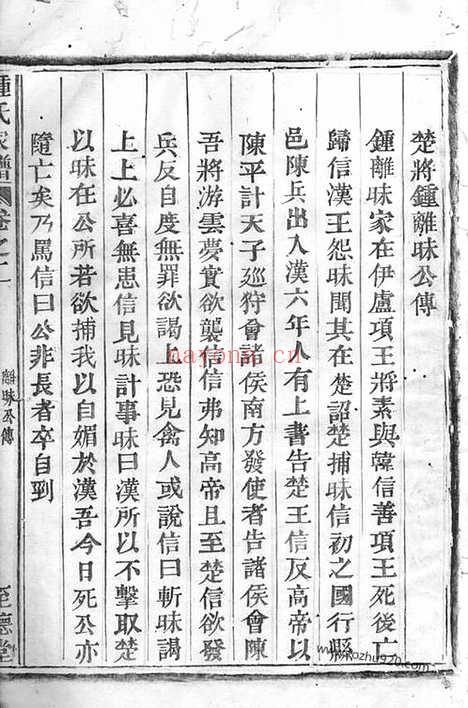 楚將鍾離昧公傳
鍾離昧家在伊廬項王將素與韓信善項王死後亡
歸信漢王怨昧聞其在楚詔楚捕昧信初之國行縣
邑陳兵出入漢六年人有上書告楚王信反高帝以
陳平計天子廵狩會諸侯南方發使者告諸侯會陳
吾將游雲夢實欲襲信信弗知高帝且至楚信欲發
兵反自度無罪欲謁上恐見禽人或說信曰斬昧謁
上上必喜無患信見昧計事昧曰漢所以不擊取楚
以昧在公所若欲捕我以自媚於漢吾今日死公亦
隨亡矣乃罵信曰公非長者卒自刭
鍾氏家譜
卷之二
離昧公傳
至德堂
nayona.cn
www.kozhu920.com